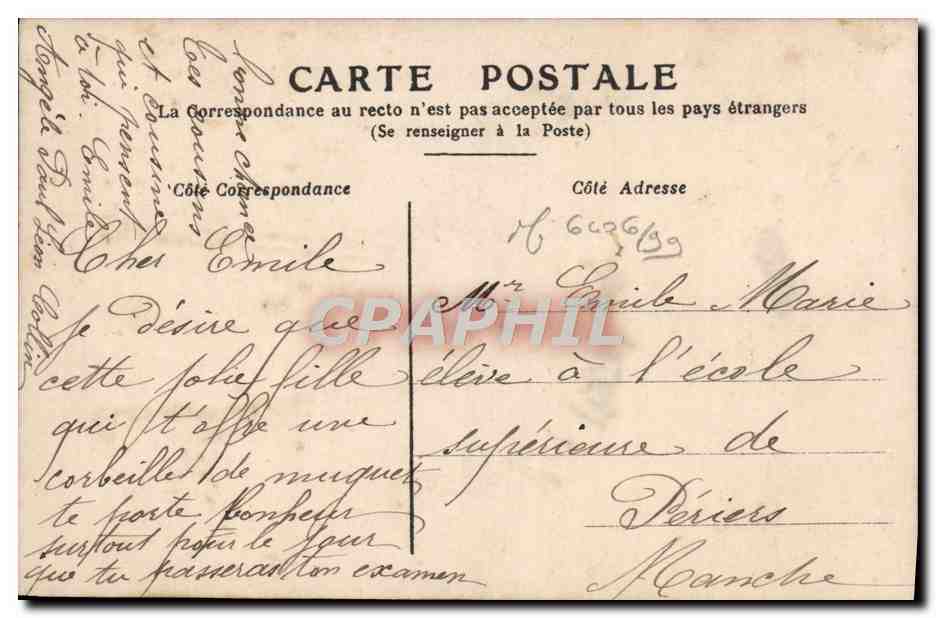 CARTE POSTALE
La Correspondance au recto n'est pas acceptée par tous les pays étrangers
(Se renseigner à la Poste)
Côté Correspondance
Cher Emile
Je désire que
cette jolie fille
qui t'offre une
corbeille de muguet
te porte bonheur
surtout pour le jour
que tu passeras ton examen
bonne chance
tes cousins
et cousine
qui pensent
à toi. Emile
Angèle Paul Léon Collin
Côté Adresse
6406/99
Mr Emile Marie
élève à l'école
supérieure de
Périers
Manche
CPAPHIL